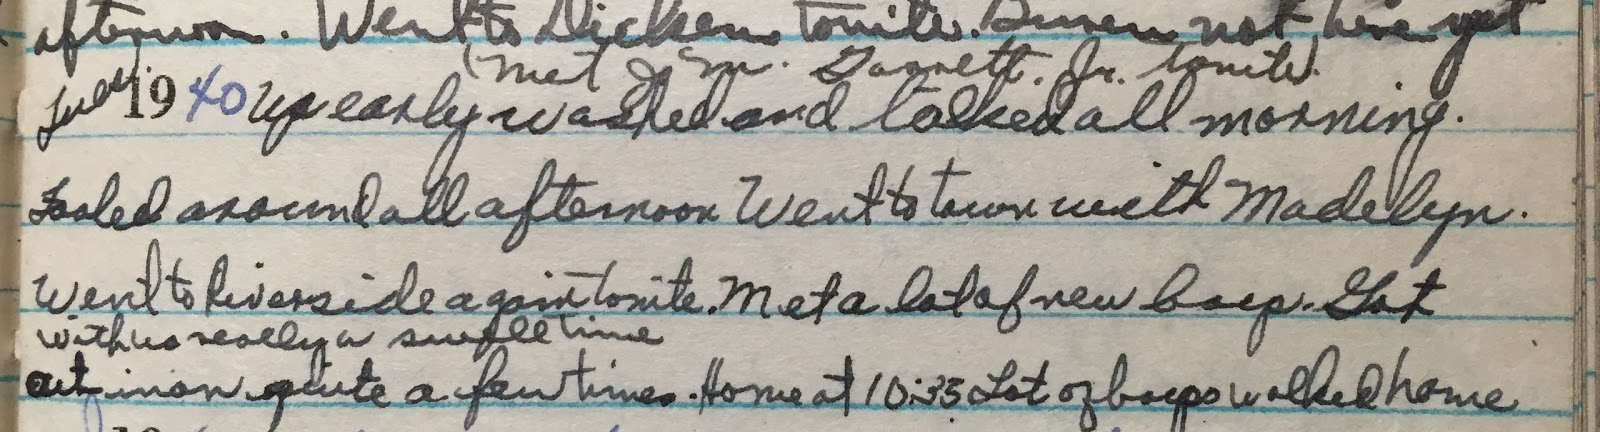 afternoon. Went to Dickens tonite. not here yet
(Met J. M. Garrett. Jr. tonite).
1940 Up early washed and talked all morning.
Fooled around all afternoon Went to town with Madelyn.
Went to Riverside again tonite. Met a lot of new boys. Got
with us really a swell time
cut in on quite a few times. Home at 10:35 Lot of boys walked home